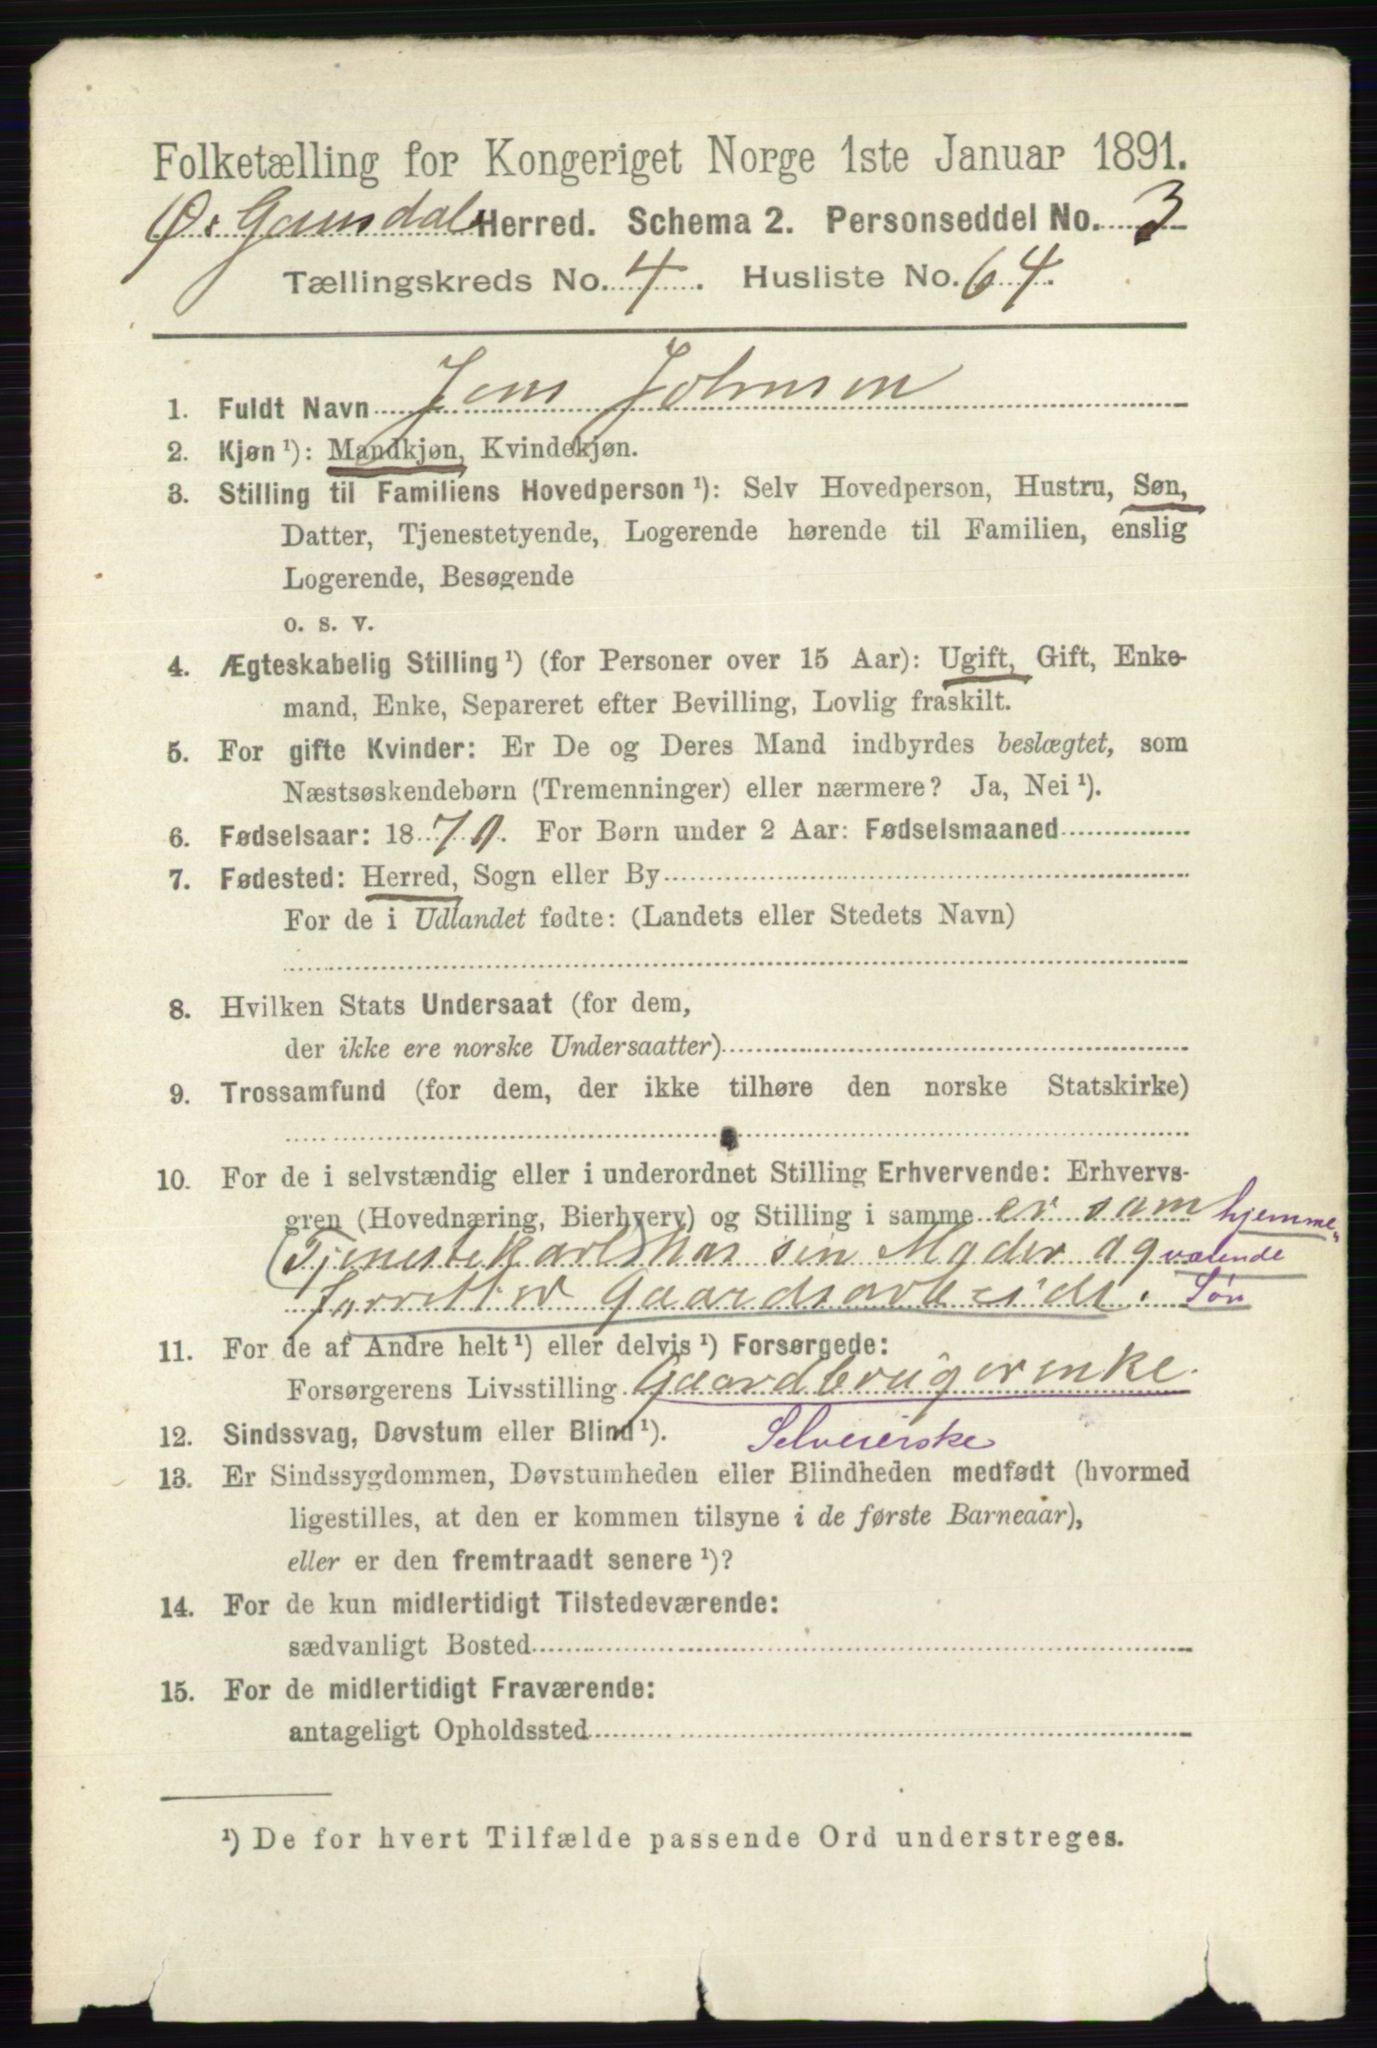 Folketælling for Kongeriget Norge 1ste Januar 1891.
Ø. Gausdal Herred. Schema 2. Personseddel No. 3
Tællingskreds No. 4. Husliste No. 64.
1. Fuldt Navn Jens Johnsen
2. Kjøn ¹): Mandkjøn, Kvindekjøn.
3. Stilling til Familiens Hovedperson ¹): Selv Hovedperson, Hustru, Søn,
Datter, Tjenestetyende, Logerende hørende til Familien, enslig
Logerende, Besøgende
o. s. v.
4. Ægteskabelig Stilling ¹) (for Personer over 15 Aar): Ugift, Gift, Enke-
mand, Enke, Separeret efter Bevilling, Lovlig fraskilt.
5. For gifte Kvinder: Er De og Deres Mand indbyrdes beslægtet, som
Næstsøskendebørn (Tremenninger) eller nærmere? Ja, Nei ¹).
6. Fødselsaar: 1870. For Børn under 2 Aar: Fødselsmaaned
7. Fødested: Herred, Sogn eller By
For de i Udlandet fødte: (Landets eller Stedets Navn)
8. Hvilken Stats Undersaat (for dem,
der ikke ere norske Undersaatter)
9. Trossamfund (for dem, der ikke tilhøre den norske Statskirke)
10. For de i selvstændig eller i underordnet Stilling Erhvervende: Erhvervs-
gren (Hovednæring, Bierhverv) og Stilling i samme er som hjemme-
(Tjenestekarl) hos sin Moder og værende
forretter Gaardsarbeide. Søn
11. For de af Andre helt ¹) eller delvis ¹) Forsørgede:
Forsørgerens Livsstilling Gaardbrugerenke.
12. Sindssvag, Døvstum eller Blind ¹). Selveierske
13. Er Sindssygdommen, Døvstumheden eller Blindheden medfødt (hvormed
ligestilles, at den er kommen tilsyne i de første Barneaar),
eller er den fremtraadt senere ¹)?
14. For de kun midlertidigt Tilstedeværende:
sædvanligt Bosted
15. For de midlertidigt Fraværende:
antageligt Opholdssted
¹) De for hvert Tilfælde passende Ord understreges.